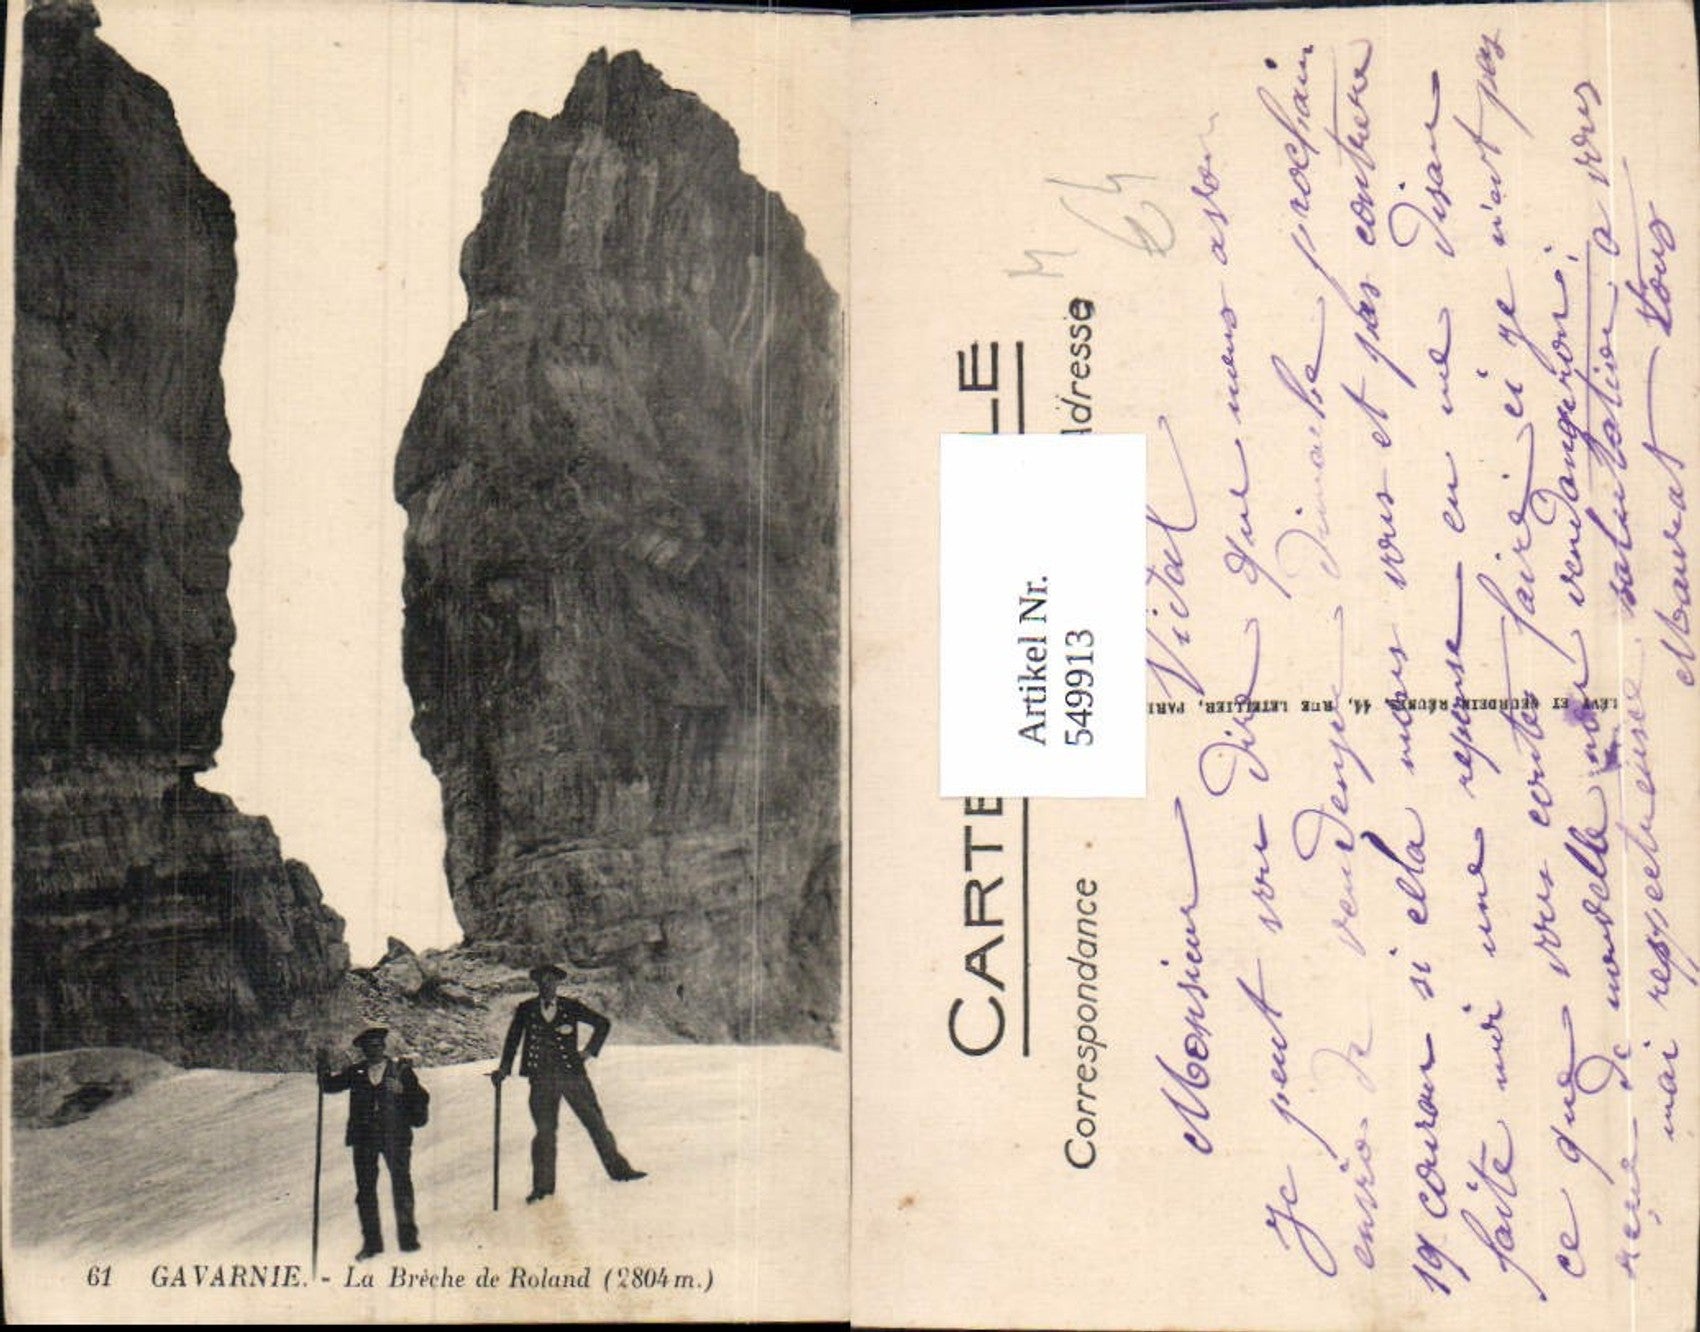 61 GAVARNIE. - La Brèche de Roland (2804 m.)
CARTE LE
Correspondance
Adresse
Artikel Nr.
549913
LÉVY ET NEURDEIN RÉUNIS, 44, RUE LETELLIER, PARI
Monsieur Vidal
Je peut vou dire que nous avon
enviro de vendenjer Dimanche prochain
19 couran si cella vous et pas contrere
faite moi une reponse en me disan
ce que vous conte faire, ci ye n'ent pas
de nouvelle nou vendangeron;
respectueuse salutation a vous
Mauvas Louis